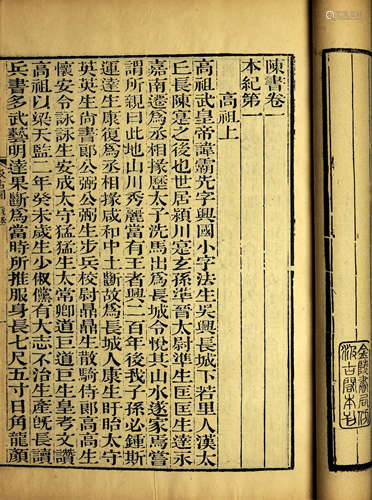 陳書卷一
本紀第一
高祖上
高祖武皇帝諱霸先字興國小字法生吳興長城下若里人漢太
丘長陳寔之後也世居潁川寔玄孫準晉太尉準生匡匡生達永
嘉南遷爲丞相掾歷太子洗馬出爲長城令悅其山水遂家焉嘗
謂所親曰此地山川秀麗當有王者興二百年後我子孫必鍾斯
運達生康復爲丞相掾咸和中土斷故爲長城人康生盱眙太守
英英生尚書郎公弼公弼生步兵校尉鼎鼎生散騎侍郎高高生
懷安令詠詠生安成太守猛猛生太常卿道巨道巨生皇考文讚
高祖以梁天監二年癸未歲生少俶儻有大志不治生產旣長讀
兵書多武藝明達果斷爲當時所推服身長七尺五寸日角龍顏
金陵書局仿
汲古閣本刊